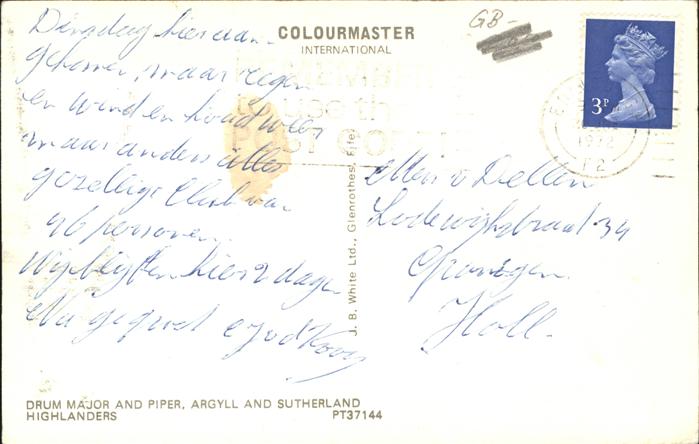 COLOURMASTER
INTERNATIONAL
GB-
Dinsdag hier aan-
gekomen, maar regen
en wind en koud weer
maar anders alles
gezellig. Club van
46 personen.
Wij blijven hier 2 dagen
REMEMBER
to use the
POST CODE
3P
1972
Mevr v Dellen
Lodewijkstraat 34
Groningen
Holl.
J. B. White Ltd., Glenrothes, Fife.
DRUM MAJOR AND PIPER, ARGYLL AND SUTHERLAND
HIGHLANDERS PT37144